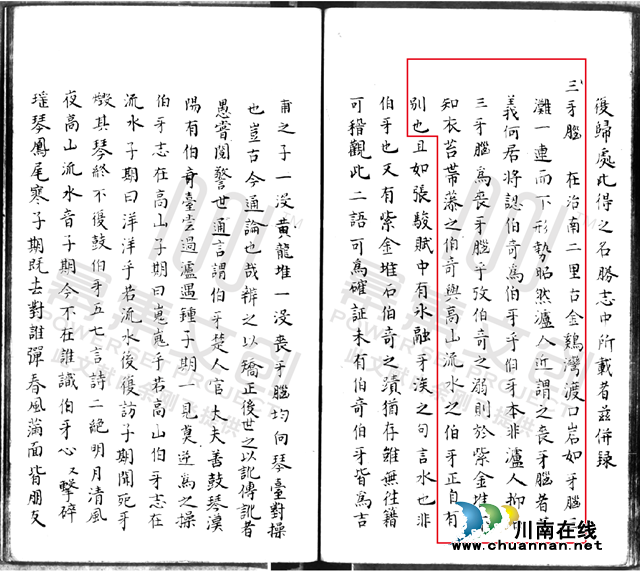 後歸處此得之名勝志中所載者兹併録
三牙腦 在治南二里古金鷄灣渡口岩如牙腦
灘一連而下形勢昭然瀘人近謂之喪牙腦者
義何居將認伯奇爲伯牙乎伯牙本非瀘人抑
三牙腦爲喪牙腦乎攷伯奇之溺則於紫金堆
知衣苔帶藻之伯奇與高山流水之伯牙正自有
别也且如張駿賦中有氷融牙渓之句言水也非
伯牙也又有紫金堆石伯奇之蹟猶存雖無往籍
可稽觀此二語可爲確証未有伯奇伯牙皆爲吉
甫之子一没黄龍堆一没喪牙腦均何琴臺對操
也豈古今通論也哉辨之以矯正後世之以訛傳訛者
愚嘗閲警世通言謂伯牙楚人官大夫善鼓琴漢
陽有伯奇臺雲過瀘遇種子期一見莫逆爲之操
伯牙志在高山子期曰嵬嵬乎若高山伯牙志在
流水子期曰洋洋乎若流水後復訪子期聞死乎
燬其琴終不復鼓伯牙五七言詩二絶明月清風
夜高山流水音子期今不在誰識伯牙心又擊碎
瑤琴鳳尾寒子期既去對誰彈春風滿面皆朋友
川南在线
www.chuannan.net